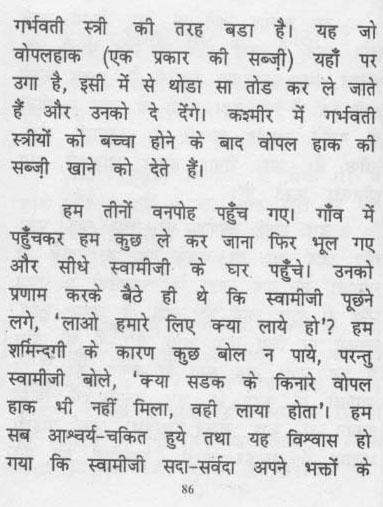 गर्भवती स्त्री की तरह बडा है। यह जो
वोपलहाक (एक प्रकार की सब्ज़ी) यहाँ पर
उगा है, इसी में से थोडा सा तोड कर ले जाते
हैं और उनको दे देंगे। कश्मीर में गर्भवती
स्त्रीयों को बच्चा होने के बाद वोपल हाक की
सब्ज़ी खाने को देते हैं।
हम तीनों वनपोह पहुँच गए। गाँव में
पहुँचकर हम कुछ ले कर जाना फिर भूल गए
और सीधे स्वामीजी के घर पहुँचे। उनको
प्रणाम करके बैठे ही थे कि स्वामीजी पूछने
लगे, ‘लाओ हमारे लिए क्या लाये हो’? हम
शर्मिन्दग़ी के कारण कुछ बोल न पाये, परन्तु
स्वामीजी बोले, ‘क्या सडक के किनारे वोपल
हाक भी नहीं मिला, वही लाया होता’। हम
सब आश्चर्य-चकित हुये तथा यह विश्वास हो
गया कि स्वामीजी सदा-सर्वदा अपने भक्तों के
86